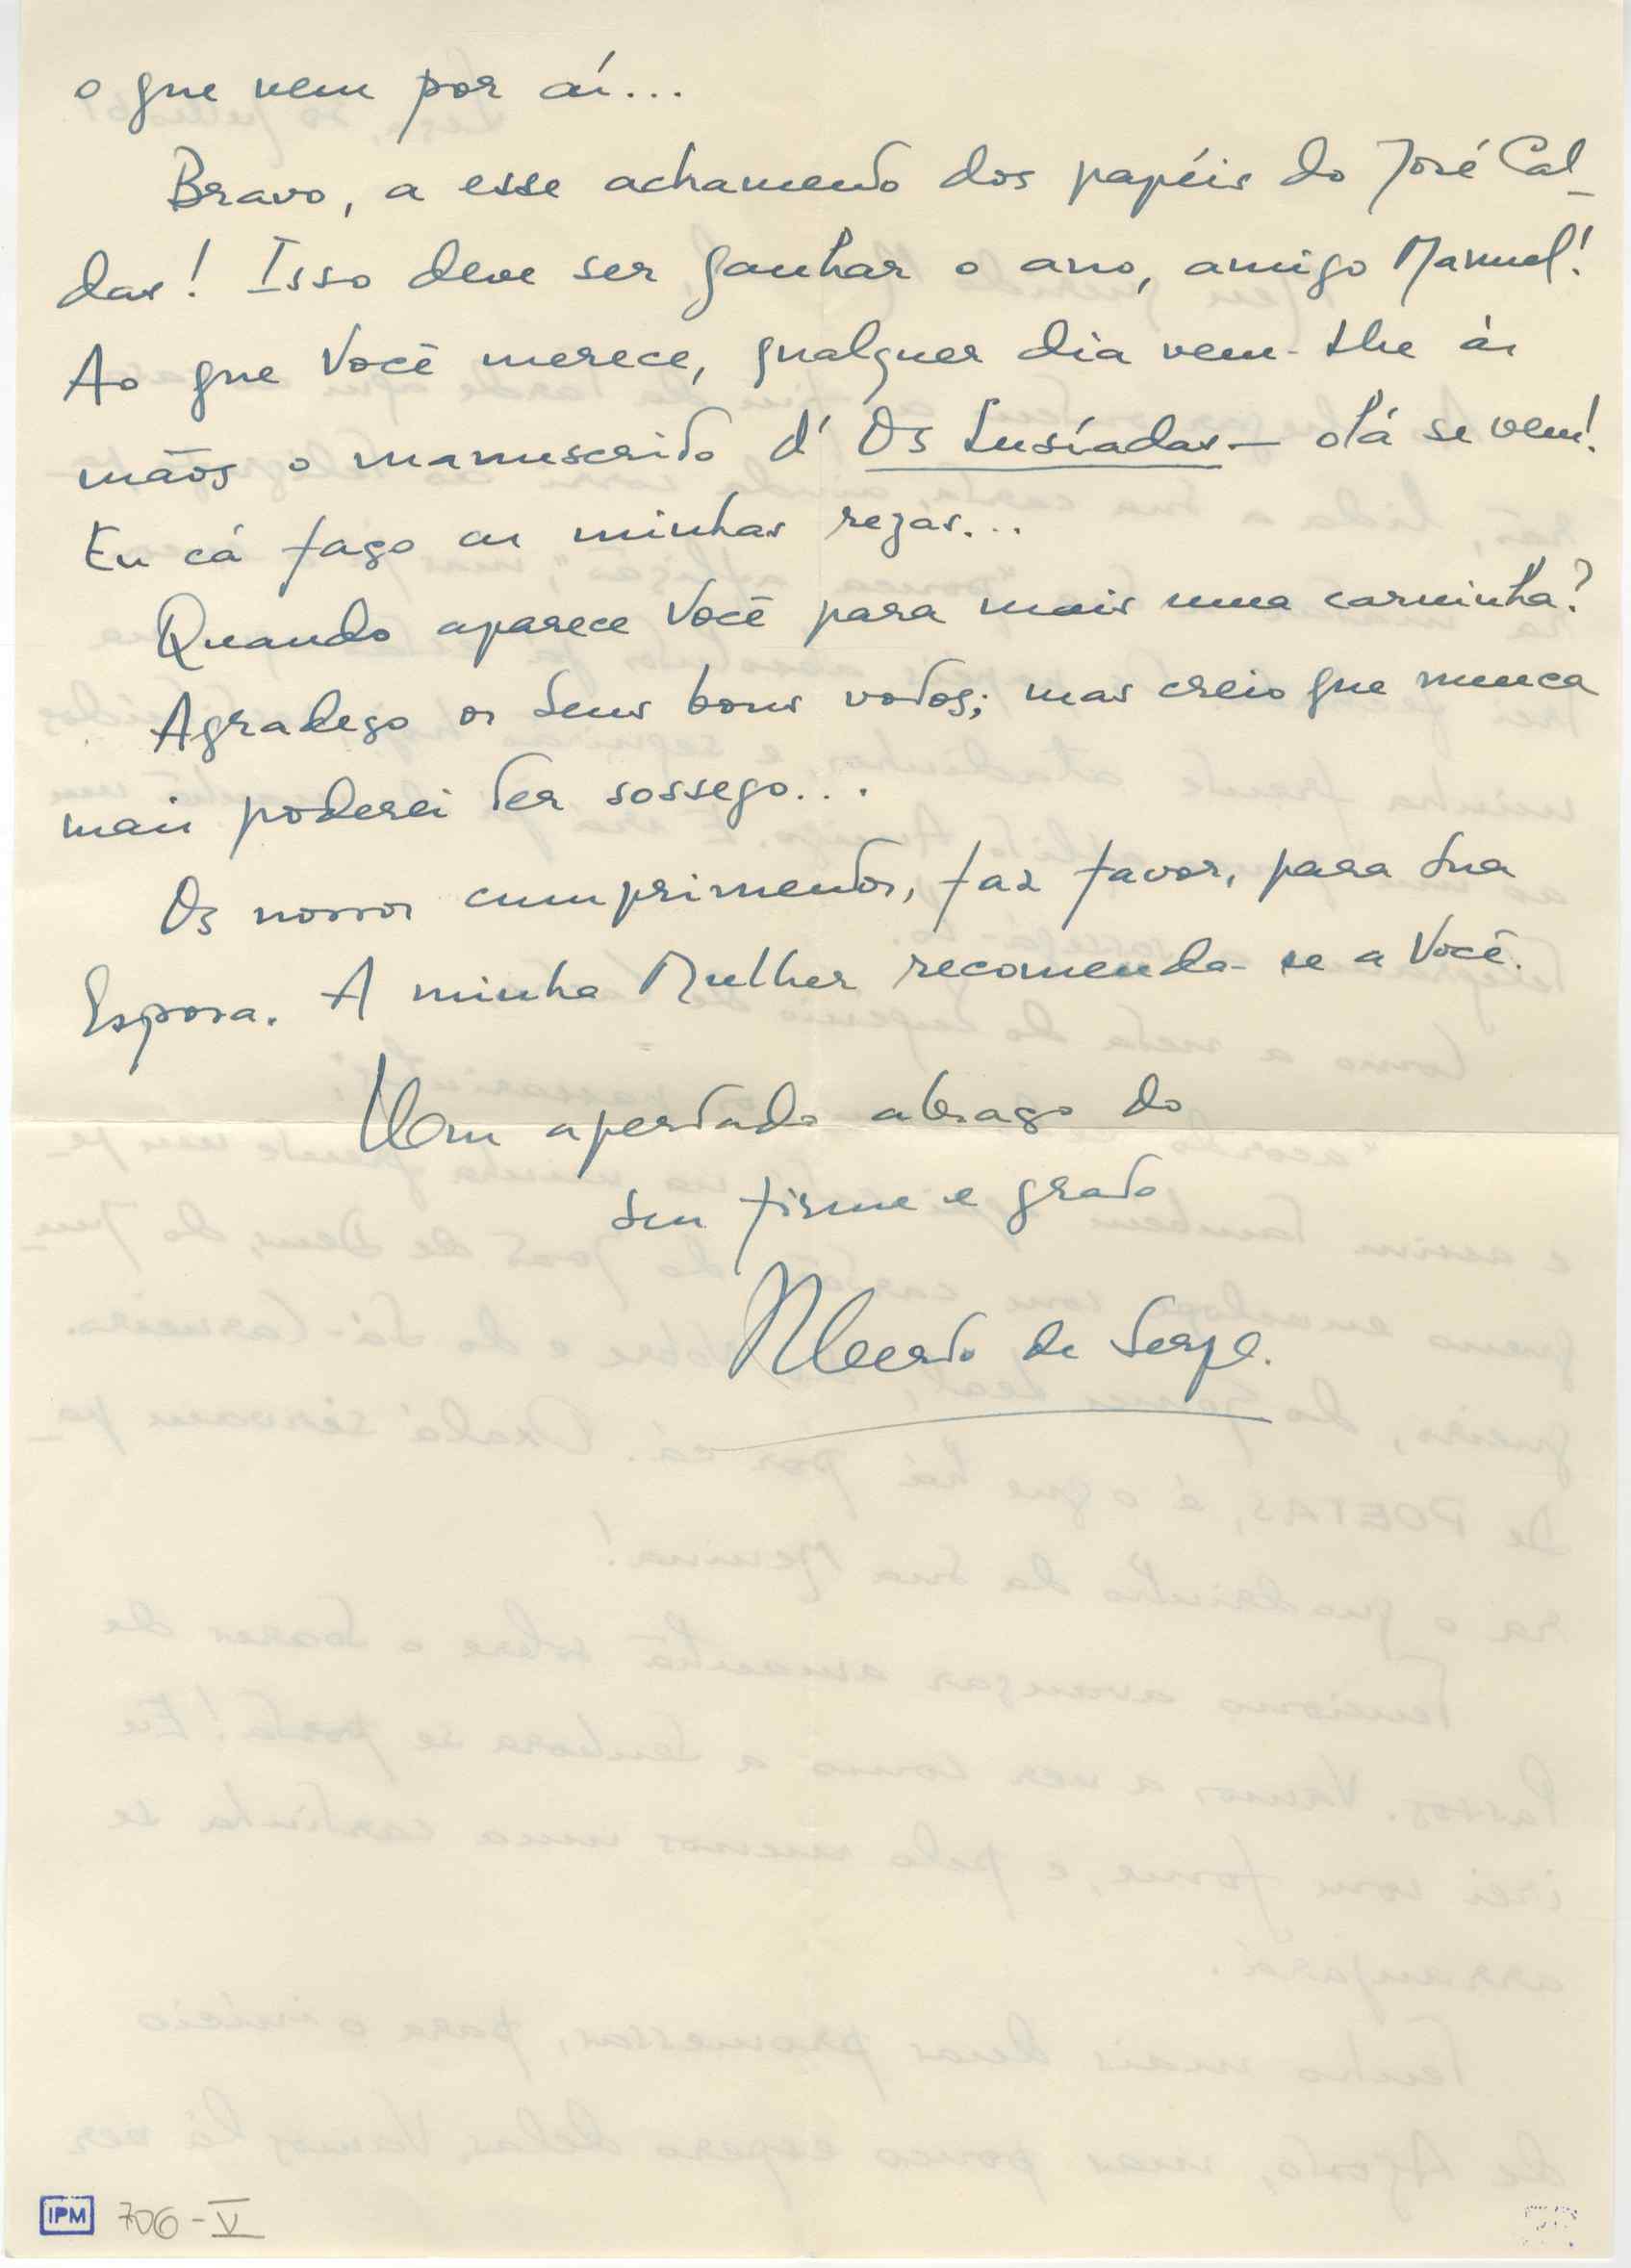 o que vem por aí...
Bravo, a esse achamento dos papéis do José Cal-
das! Isso deve ser ganhar o ano, amigo Manuel!
Ao que Você merece, qualquer dia vem-lhe às
mãos o manuscrito d'Os Lusíadas — olá se vem!
Eu cá faço as minhas rezas...
Quando aparece Você para mais uma carninha?
Agradeço os Seus bons votos; mas creio que nunca
mais poderei ter sossego...
Os nossos cumprimentos, faz favor, para Sua
Esposa. A minha Mulher recomenda-se a Você.
Um apertado abraço do
Seu firme e grato
Alberto de Serpa.
IPM 706-V